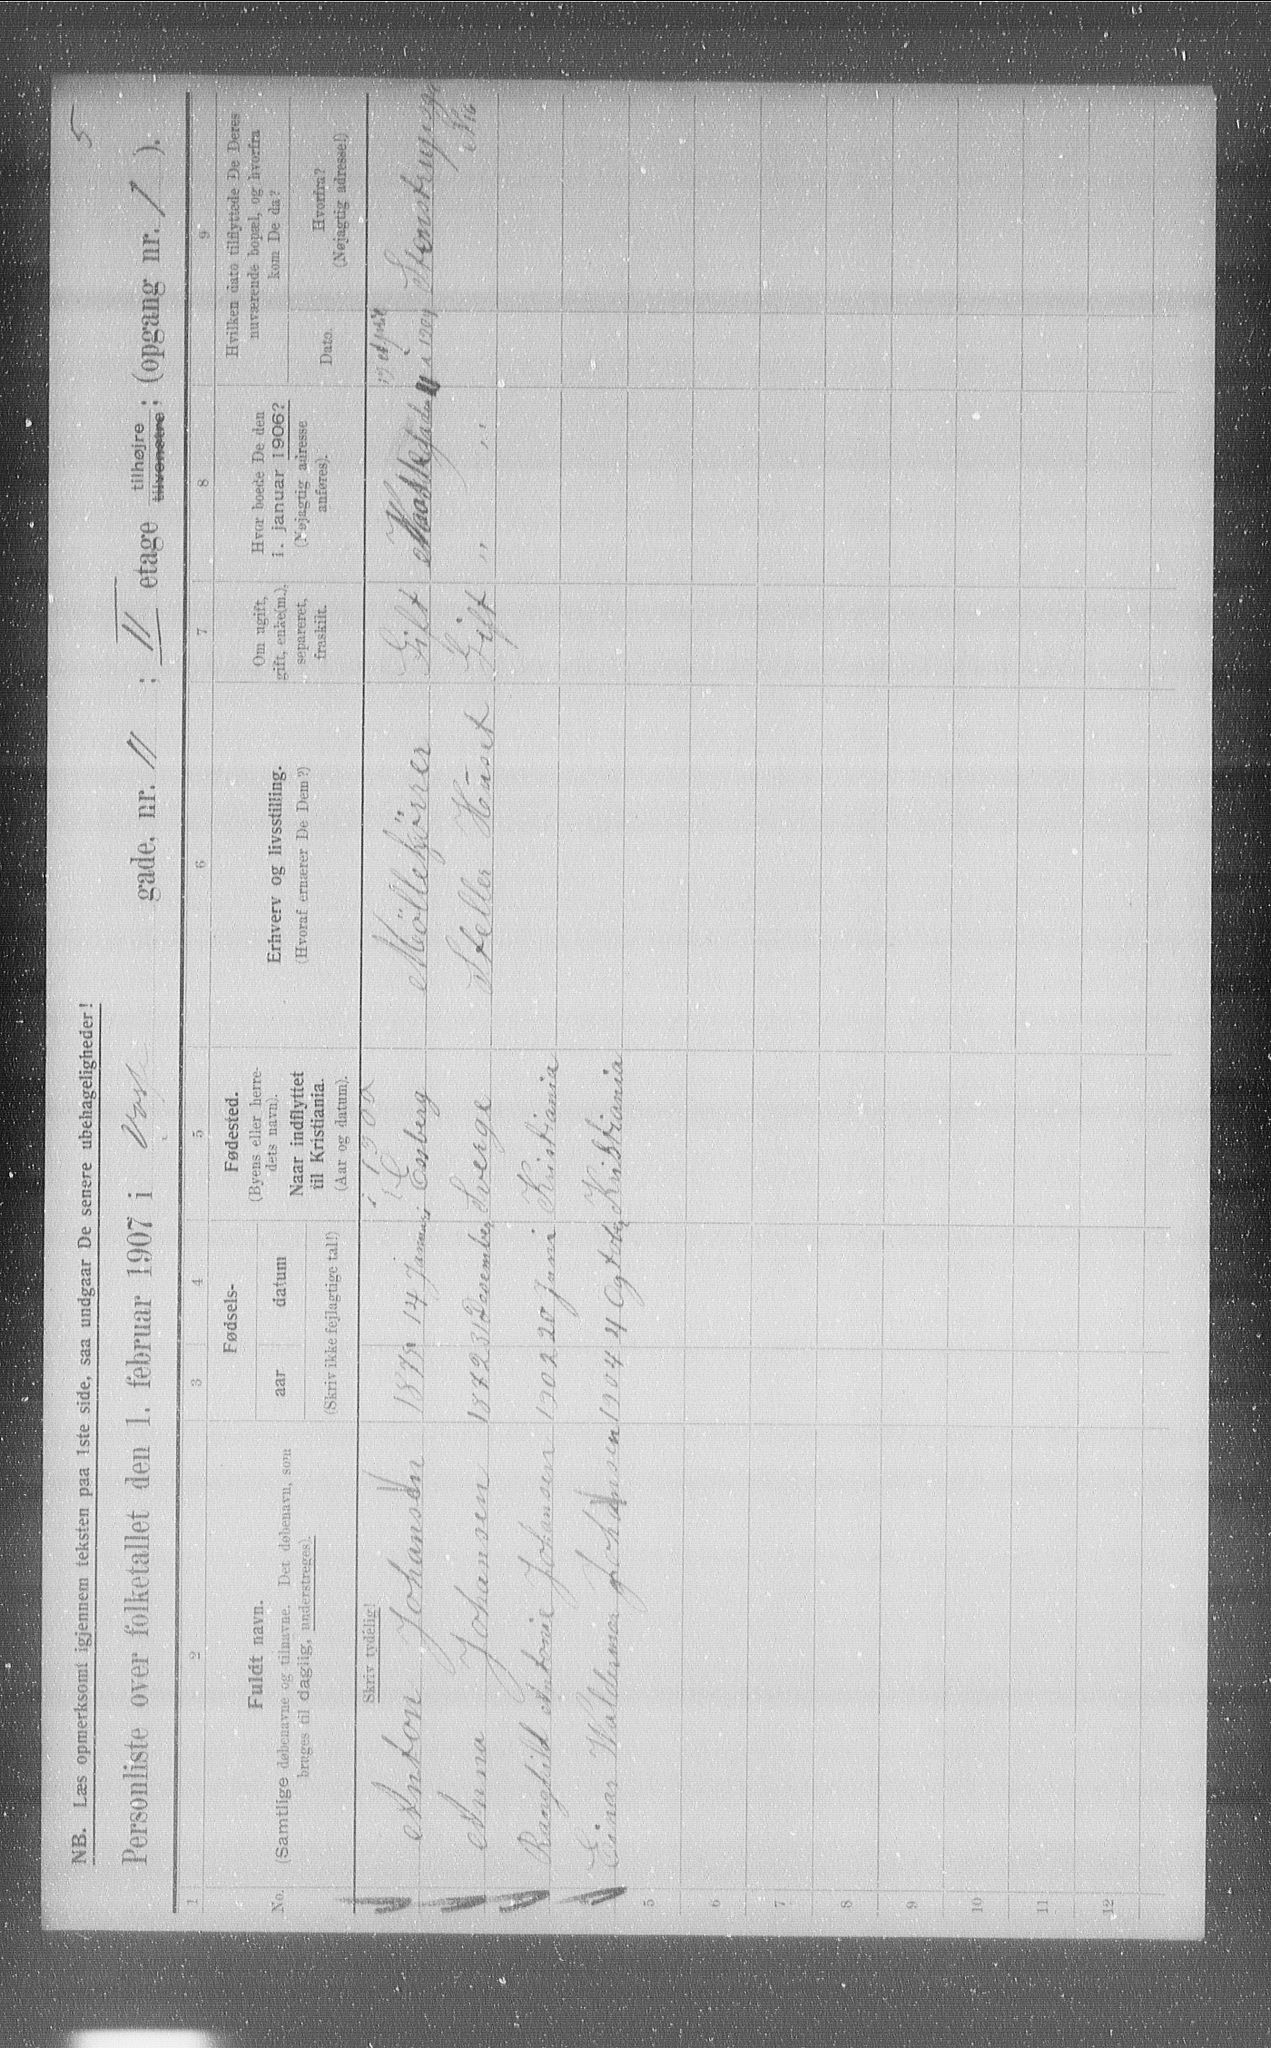 5
NB. Læs opmerksomt igjennem teksten paa 1ste side, saa undgaar De senere ubehageligheder!
Personliste over folketallet den 1. februar 1907 i Vogts gade, nr. 11 ; II etage tilhøjre tilvenstre; (opgang nr. 1 ).
1 2 3 4 5 6 7 8 9
No.
Fuldt navn.
(Samtlige døbenavne og tilnavne. Det døbenavn, som
bruges til daglig, understreges).
Fødsels-
aar datum
(Skriv ikke fejlagtige tal!)
Fødested.
(Byens eller herre-
dets navn).
Naar indflyttet
til Kristiania.
(Aar og datum).
Erhverv og livsstilling.
(Hvoraf ernærer De Dem?)
Om ugift,
gift, enke(m.),
separeret,
fraskilt.
Hvor boede De den
1. januar 1906?
(Nøjagtig adresse
anføres).
Hvilken dato tilflyttede De Deres
nuværende bopæl, og hvorfra
kom De da?
Dato.
Hvorfra?
(Nøjagtig adresse!)
Skriv tydelig!
Anton Johansen 14 Januar Enberg Möllekjörrer Gift
Anna Johansen 1872 31 Desember Sverge Steller Huset Gift " "
Ranghild Antonie Johansen 1902 20 Juni Kristiania
Einar Waldemar Johansen 1904 4 Ogtober Kristiania
5
6
7
8
9
10
11
12